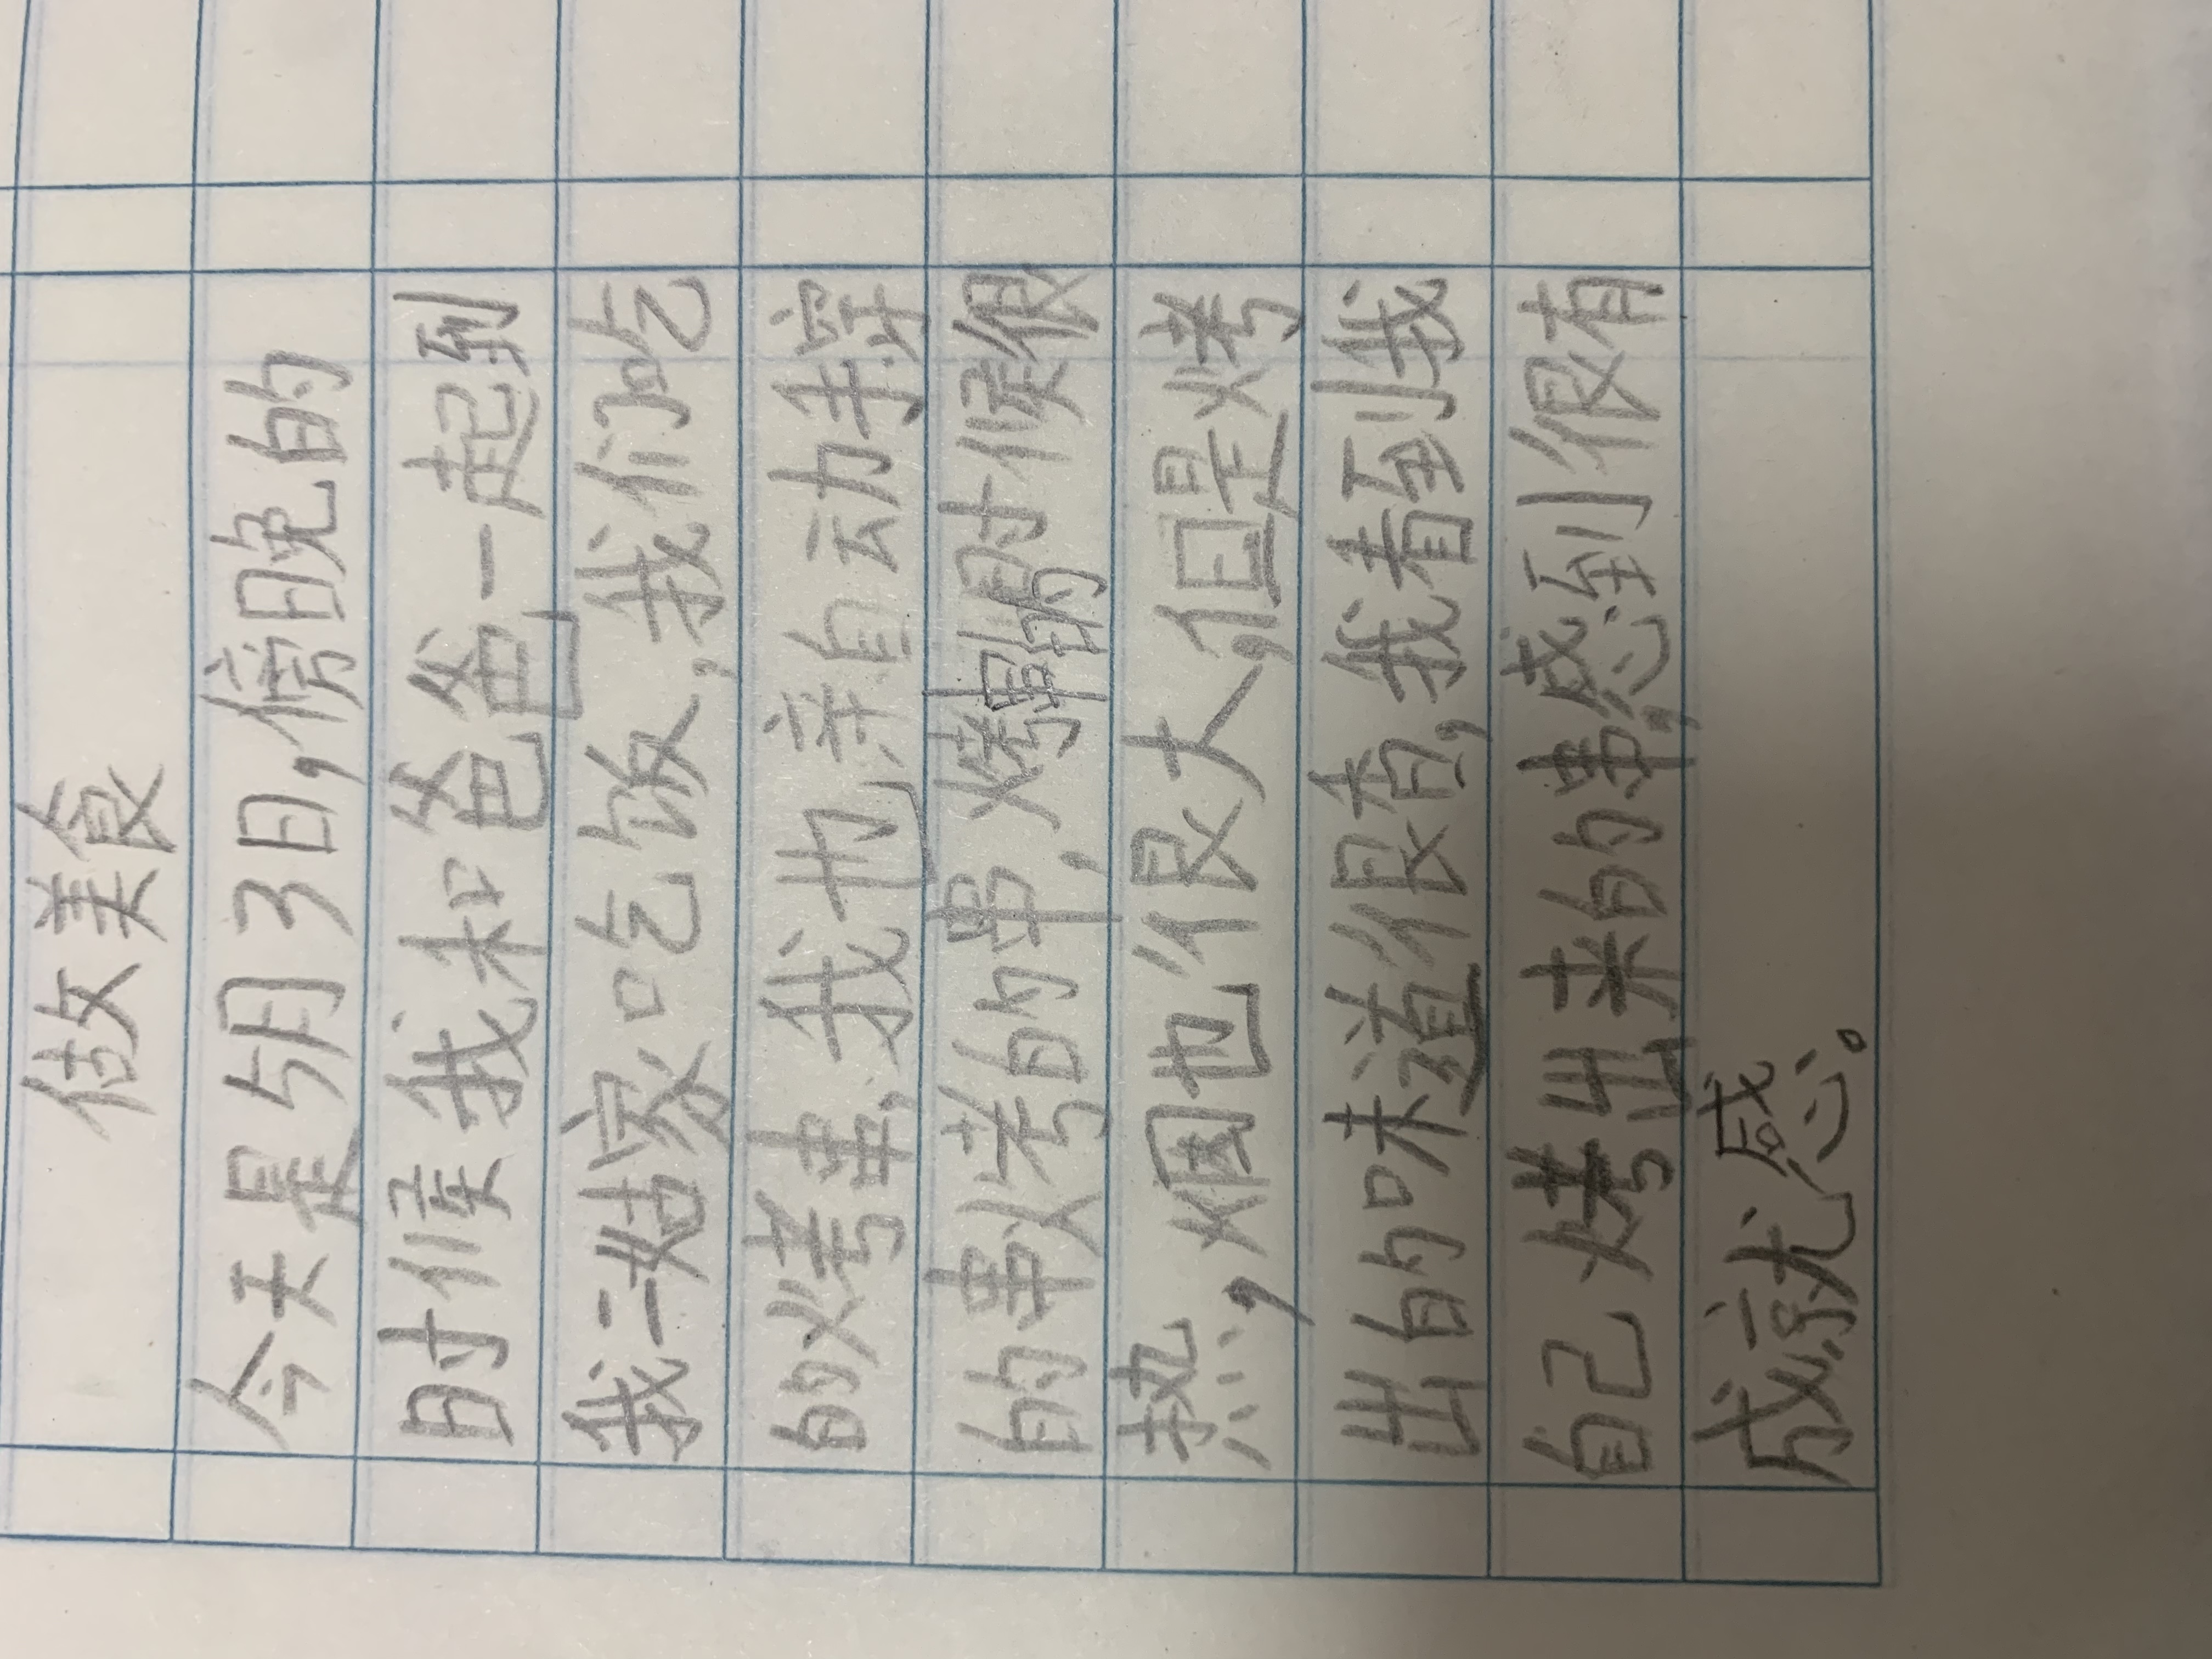 做美食
今天是5月3日，傍晚的
时候我和爸爸一起到
我二姑家吃饭，我们吃
的烤串，我也亲自动手穿
的串烤的串，烤串的时候很
热，烟也很大，但是烤
出的味道很香，我看到我
自己烤出来的串，感到很有
成就感。